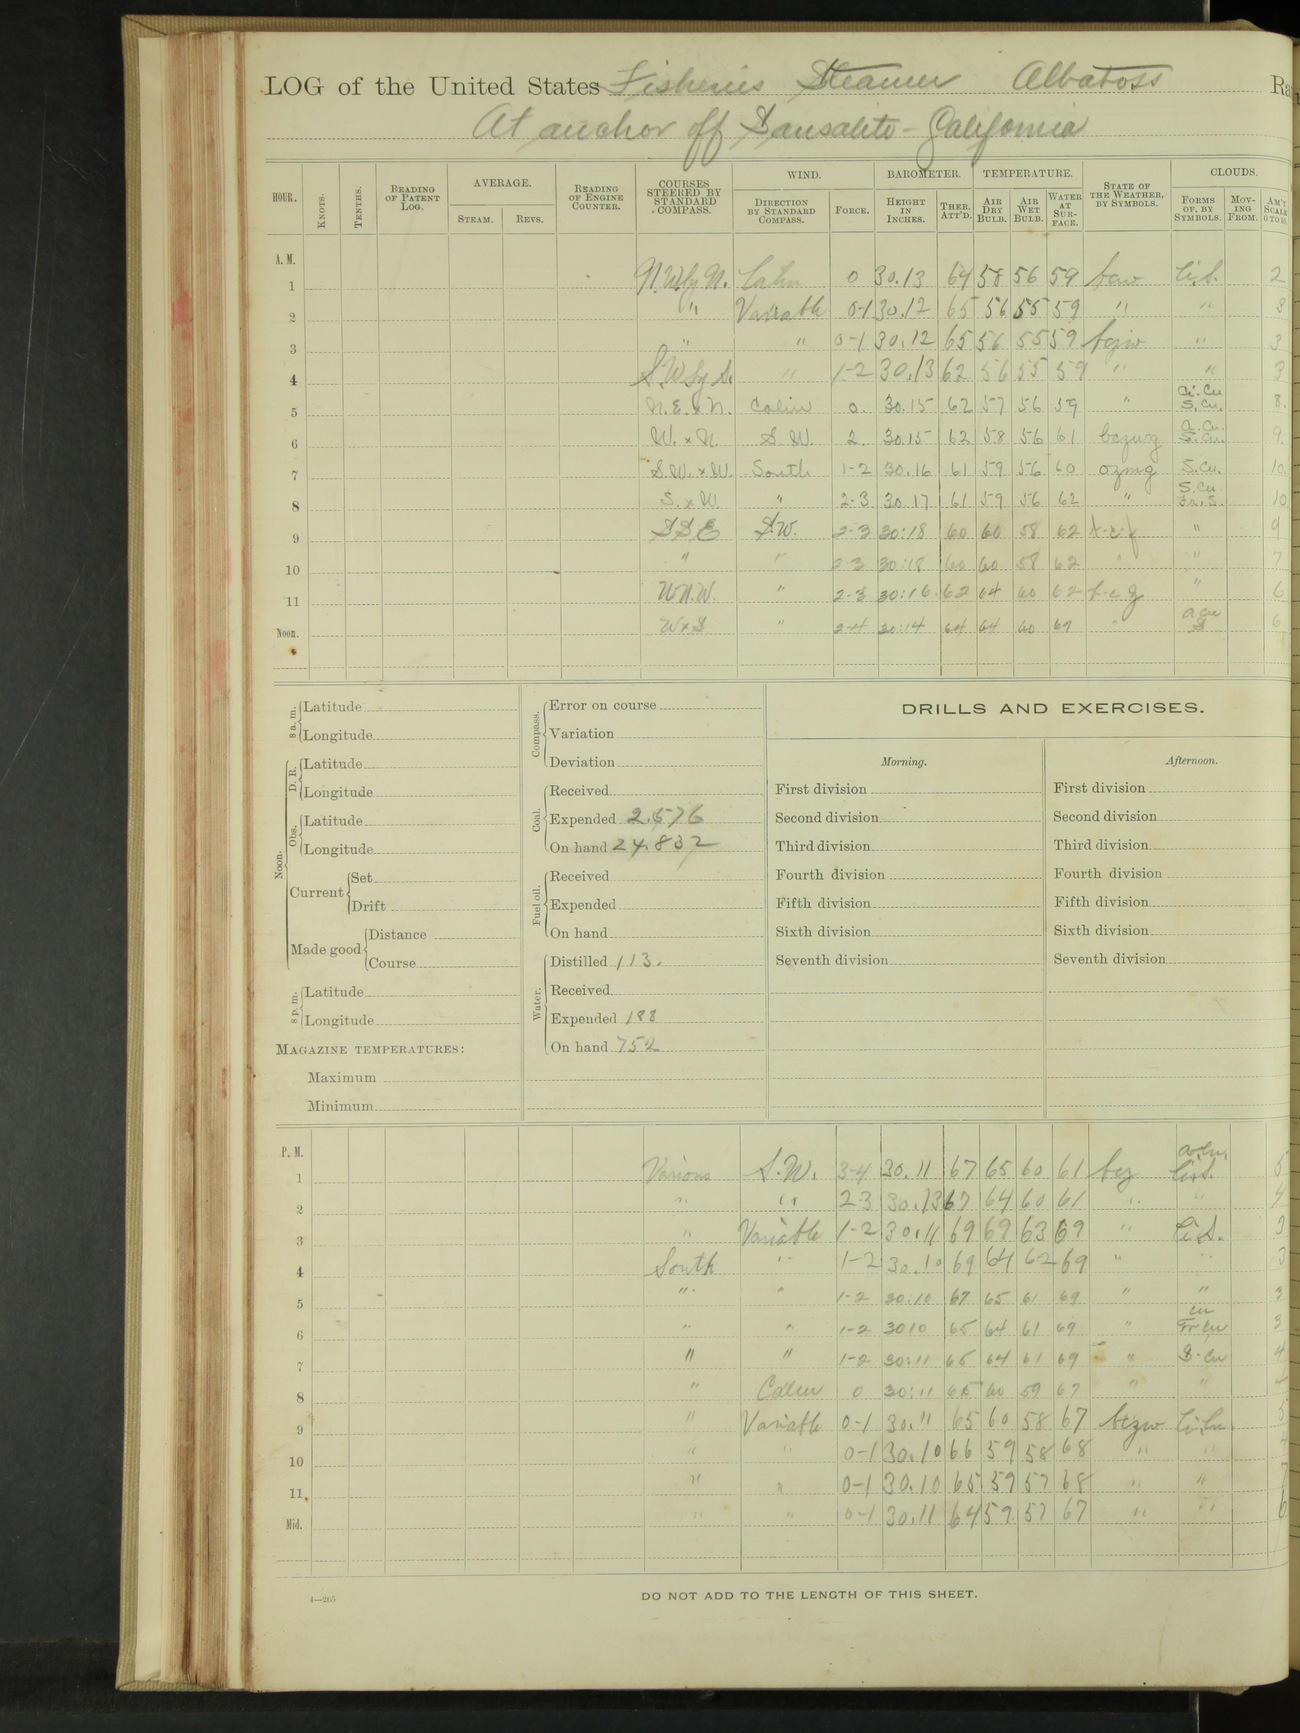 LOG of the United States Fisheries Steamer Albatross Ra
At anchor off Sausalito - California
HOUR. KNOTS. TENTHS. READING OF PATENT LOG. AVERAGE. STEAM. REVS. READING OF ENGINE COUNTER. COURSES STEERED BY STANDARD COMPASS. WIND. DIRECTION BY STANDARD COMPASS. FORCE. BAROMETER. HEIGHT IN INCHES. THER. ATT'D. TEMPERATURE. AIR DRY BULB. AIR WET BULB. WATER AT SURFACE. STATE OF THE WEATHER, BY SYMBOLS. CLOUDS. FORMS OF, BY SYMBOLS. MOVING FROM. AM'T SCALE 0 TO 10.
A. M.
1 N.W.by N. Calm 0 30.13 64 58 56 59 bcw Ci.S. 2
2 " Variable 0-1 30.12 65 56 55 59 " " 3
3 " " 0-1 30.12 65 56 55 59 bczw " 3
4 S.W by S. " 1-2 30.13 62 56 55 59 " " 3
5 N.E. x N. Calm 0. 30.15 62 57 56 59 " Ci.-Cu S.Cu. 8.
6 W. x N. S.W. 2. 30.15 62 58 56 61 bczwg a.Cu. S.Cu. 9.
7 S.W. x W. South 1-2 30.16 61 59 56 60 ozmg S.Cu. 10.
8 S. x W. " 2-3 30.17 61 59 56 62 " S.Cu. Fr.S. 10
9 S S E S.W. 2-3 30:18 60 60 58 62 " 9
10 " " 2-3 30:18 60 60 58 62 " " 7
11 W.N.W. " 2-3 30:16 62 64 60 62 b-c z " 6
Noon. W x S " 2-4 30:14 64 64 60 69 " a cu S 6
8 a. m. Latitude
Longitude
Noon. D. R. Latitude
Longitude
Obs. Latitude
Longitude
Current Set
Drift
Made good Distance
Course
8 p. m. Latitude
Longitude
MAGAZINE TEMPERATURES:
Maximum
Minimum
Compass. Error on course
Variation
Deviation
Coal. Received
Expended 2.576
On hand 24.832
Fuel oil. Received
Expended
On hand
Water. Distilled 113.
Received
Expended 188
On hand 752
DRILLS AND EXERCISES.
Morning. Afternoon.
First division First division
Second division Second division
Third division Third division
Fourth division Fourth division
Fifth division Fifth division
Sixth division Sixth division
Seventh division Seventh division
P. M.
1 Various S.W. 3-4 30.11 67 65 60 61 bcz a.cu. Ci.S. 5
2 " " 2-3 30.13 67 64 60 61 " " 4
3 " Variable 1-2 30.11 69 69 63 69 " Ci.S. 3
4 South " 1-2 30.10 69 64 62 69 " " 3
5 " " 1-2 30:10 67 65 61 69 " " 3
6 " " 1-2 3010 65 64 61 69 " cu Fr cu 3
7 " " 1-2 30:11 65 64 61 69 " S-cu 4
8 " Calm 0 30:11 65 60 59 67 " "
9 " Variable 0-1 30." 65 60 58 67 bczw Ci.Cu. 5
10 " " 0-1 30.10 66 59 58 68 " "
11 " " 0-1 30.10 65 59 57 68 " " 7
Mid. " " 0-1 30.11 64 59 57 67 " " 6
4—265
DO NOT ADD TO THE LENGTH OF THIS SHEET.